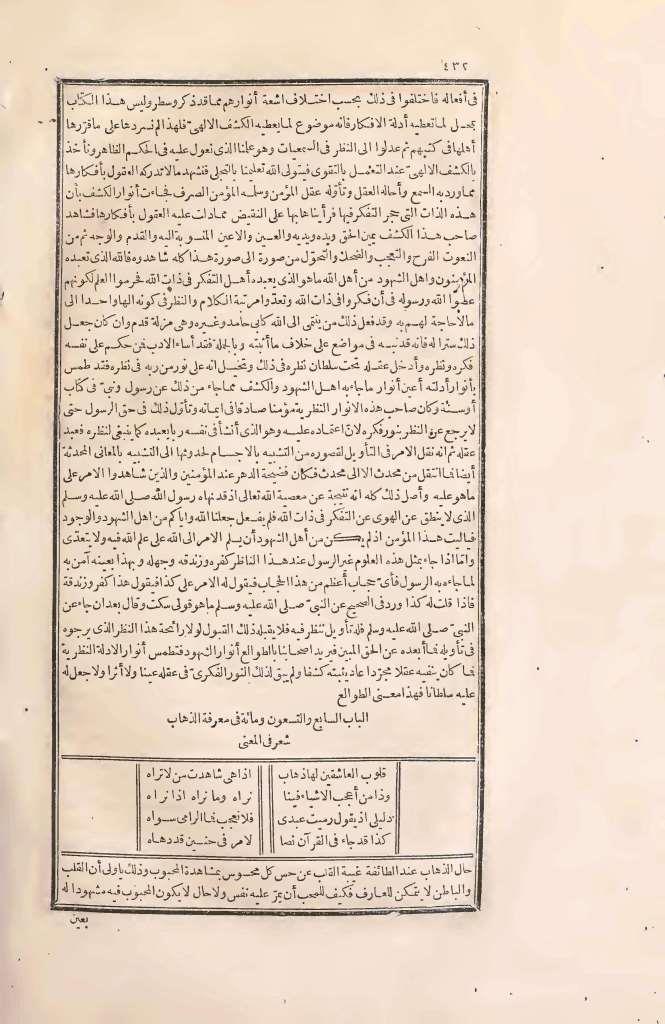 ٤٣٢
فى أفعاله فاختلفوا فى ذلك بحسب اختلاف اشعة أنوارهم مما قد ذكر وسطر وليس هذا الكتاب
بمحل لما تعطيه أدلة الافكار فانه موضوع لما يعطيه الكشف الالهى فلهذا لم نسردها على ما قررها
أهلها فى كتبهم ثم عدلوا الى النظر فى السمعيات وهو علمنا الذى نعول عليه فى الحكم الظاهر ونأخذ
بالكشف الالهى عند التعمل بالتقوى فيتولى الله تعليمنا بالتجلى فنشهد ما لا تدركه العقول بأفكارها
مما ورد به السمع وأحاله العقل وتأوله عقل المؤمن وسلمه المؤمن الصرف فجاءت أنوار الكشف بأن
هذه الذات التى حجر التفكر فيها فرأيناها بها على النقيض مما دات عليه العقول بأفكارها فشاهد
صاحب هذا الكشف يمين الحق ويده ويديه والعين والاعين المنسوبة اليه والقدم والوجه ثم من
النعوت الفرح والتعجب والضحك والتحول من صورة الى صورة هذا كله شاهدوه فالله الذى تعبده
المؤمنون واهل الشهود من أهل الله ما هو الذى يعبده أهل التفكر فى ذات الله فحرموا العلم لكونهم
عصوا الله ورسوله فى أن فكروا فى ذات الله وتعدوا مرتبة الكلام والنظر فى كونه الها واحدا الى
ما لا حاجة لهم به وقد فعل ذلك من ينتمى الى الله كابى حامد وغيره وهى مزلة قدم وان كان جعل
ذلك سترا له فانه قد نبه فى مواضع على خلاف ما أثبته وبالجملة فقد أساء الادب فمن حكم على نفسه
فكره ونظره وأدخل عقله تحت سلطان نظره فى ذلك وتخيل انه على نور من ربه فى نظره فقد طمس
بأنوار أدلته أعين أنوار ما جاء به اهل الشهود والكشف فما جاء من ذلك عن رسول ونبى فى كتاب
أو سنة وكان صاحب هذه الانوار النظرية مؤمنا صادقا فى ايمانه وتأول ذلك فى حق الرسول حتى
لا يرجع عن النظر بنور فكره لان اعتماده عليه وهو الذى أنشأ فى نفسه ربا يعبده كما ينبغى لنظره فعبد
عقله ثم انه نقل الامر فى التأويل لقصوره من التشبيه بالاجسام لحدوثها الى التشبيه بالمعانى المحدثة
أيضا فما انتقل من محدث الا الى محدث فكان فضيحة الدهر عند المؤمنين والذين شاهدوا الامر على
ما هو عليه وأصل ذلك كله انه نتيجة عن معصية الله تعالى اذ قد نهاه رسول الله صلى الله عليه وسلم
الذى لا ينطق عن الهوى عن التفكر فى ذات الله فلم يفعل جعلنا الله واياكم من اهل الشهود والوجود
فياليت هذا المؤمن اذ لم يكن من أهل الشهود أن يسلم الامر الى الله على علم الله فيه ولا يتعدى
وأما اذا جاء بمثل هذه العلوم غير الرسول عند هذا الناظر كفره وزندقه وجهله وبهذا بعينه آمن به
لما جاءه به الرسول فأى حجاب أعظم من هذا الحجاب فيقول له الامر على كذا فيقول هذا كفر وزندقة
فاذا قلت له كذا ورد فى الصحيح عن النبى صلى الله عليه وسلم ما هو قولى سكت وقال بعد ان جاء عن
النبى صلى الله عليه وسلم فله تأويل ننظر فيه فلا يقبله ذلك القبول لولا رائحة هذا النظر الذى يرجوه
فى تأويله فما أبعده عن الحق المبين فيريد اصحابنا بالطوالع أنوار الشهود فتطمس أنوار الادلة النظرية
فما كان ينفيه عقلا مجردا عاد يثبته كشفا ولم يبق لذلك النور الفكرى فى عقله عينا ولا أثرا ولا جعل له
عليه سلطانا فهذا معنى الطوالع
الباب السابع والتسعون ومائة فى معرفة الذهاب
شعر فى المعنى
قلوب العاشقين لها ذهاب اذا هى شاهدت من لا تراه
وذا من أعجب الاشياء فينا نراه وما نراه اذا نراه
دليلى اذ يقول رميت عبدى فلا تعجب فما الرامى سواه
كذا قد جاء فى القرآن نصا لامر فى حنين قد دهاه
حال الذهاب عند الطائفة غيبة القلب عن حس كل محسوس بمشاهدة المحبوب وذلك ياولى أن القلب
والباطن لا يتمكن للعارف فكيف للمحب أن يمر عليه نفس ولا حال لا يكون المحبوب فيه مشهودا له
بعين